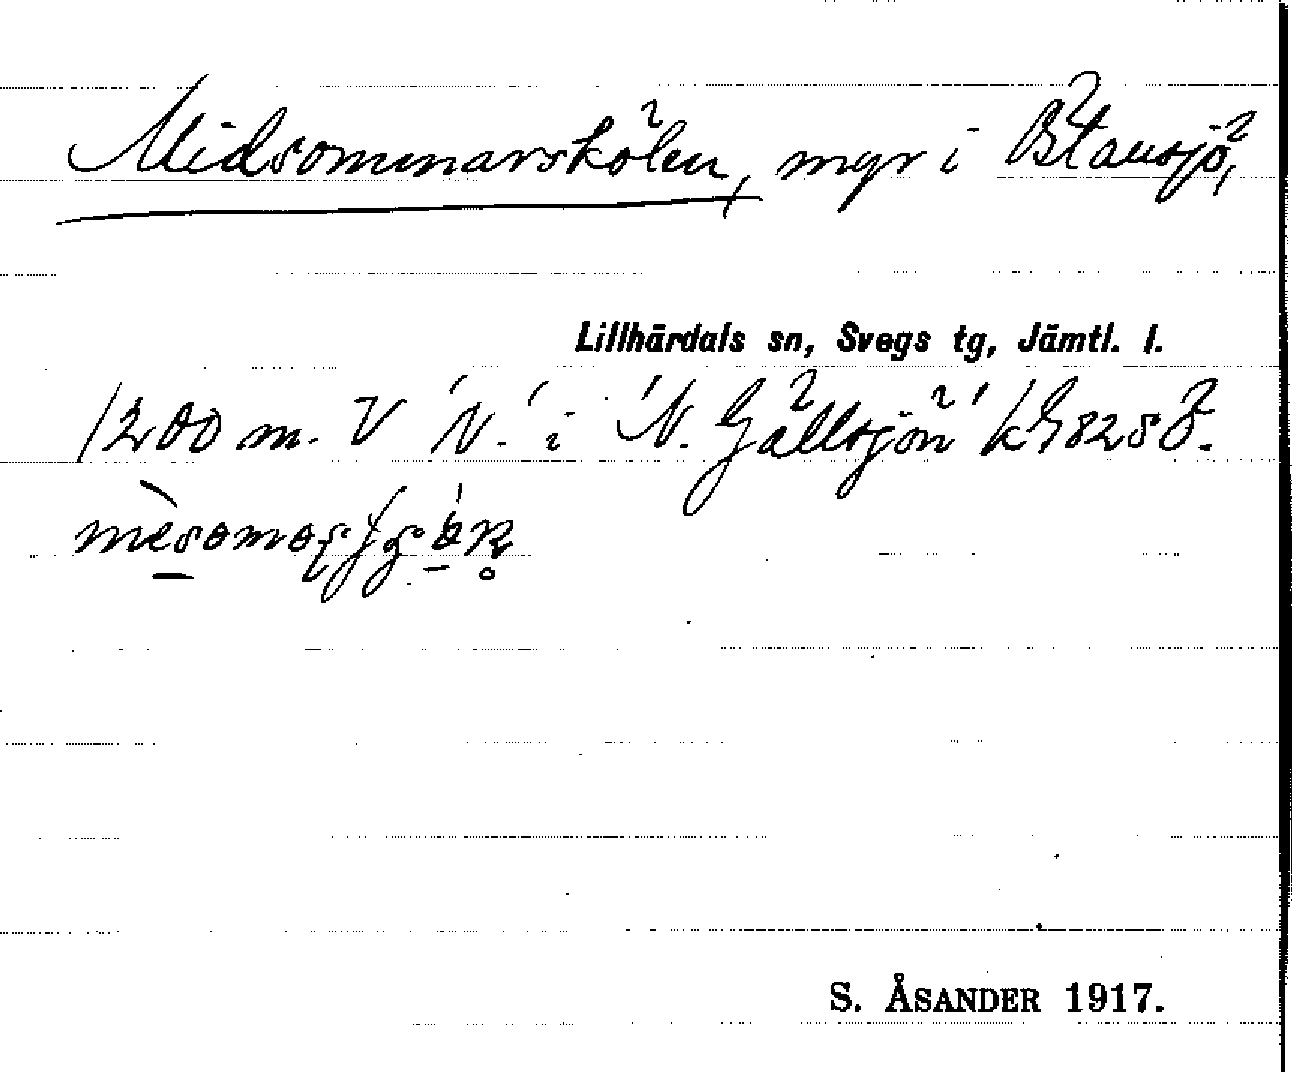 Midsommarskölen, mgr i Blansjö,
Lillhärdals sn, Svegs tg, Jämtl. l.
1200 m. V 'N.' i 'N. Gällsjön' k 9828
S. ÅSANDER 1917.